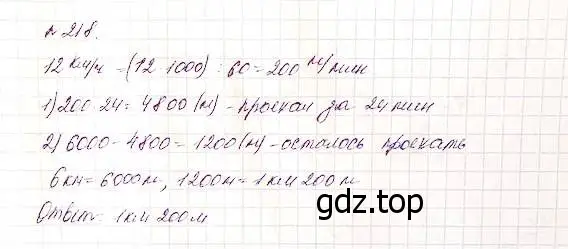 № 218.
12 км/ч = (12 1000) : 60 = 200 м/мин
1) 200 24 = 4800 (м) - проехал за 24 мин
2) 6000 - 4800 = 1200 (м) - осталось проехать
6 км = 6000 м, 1200 м = 1 км 200 м
Ответ: 1 км 200 м
gdz.top